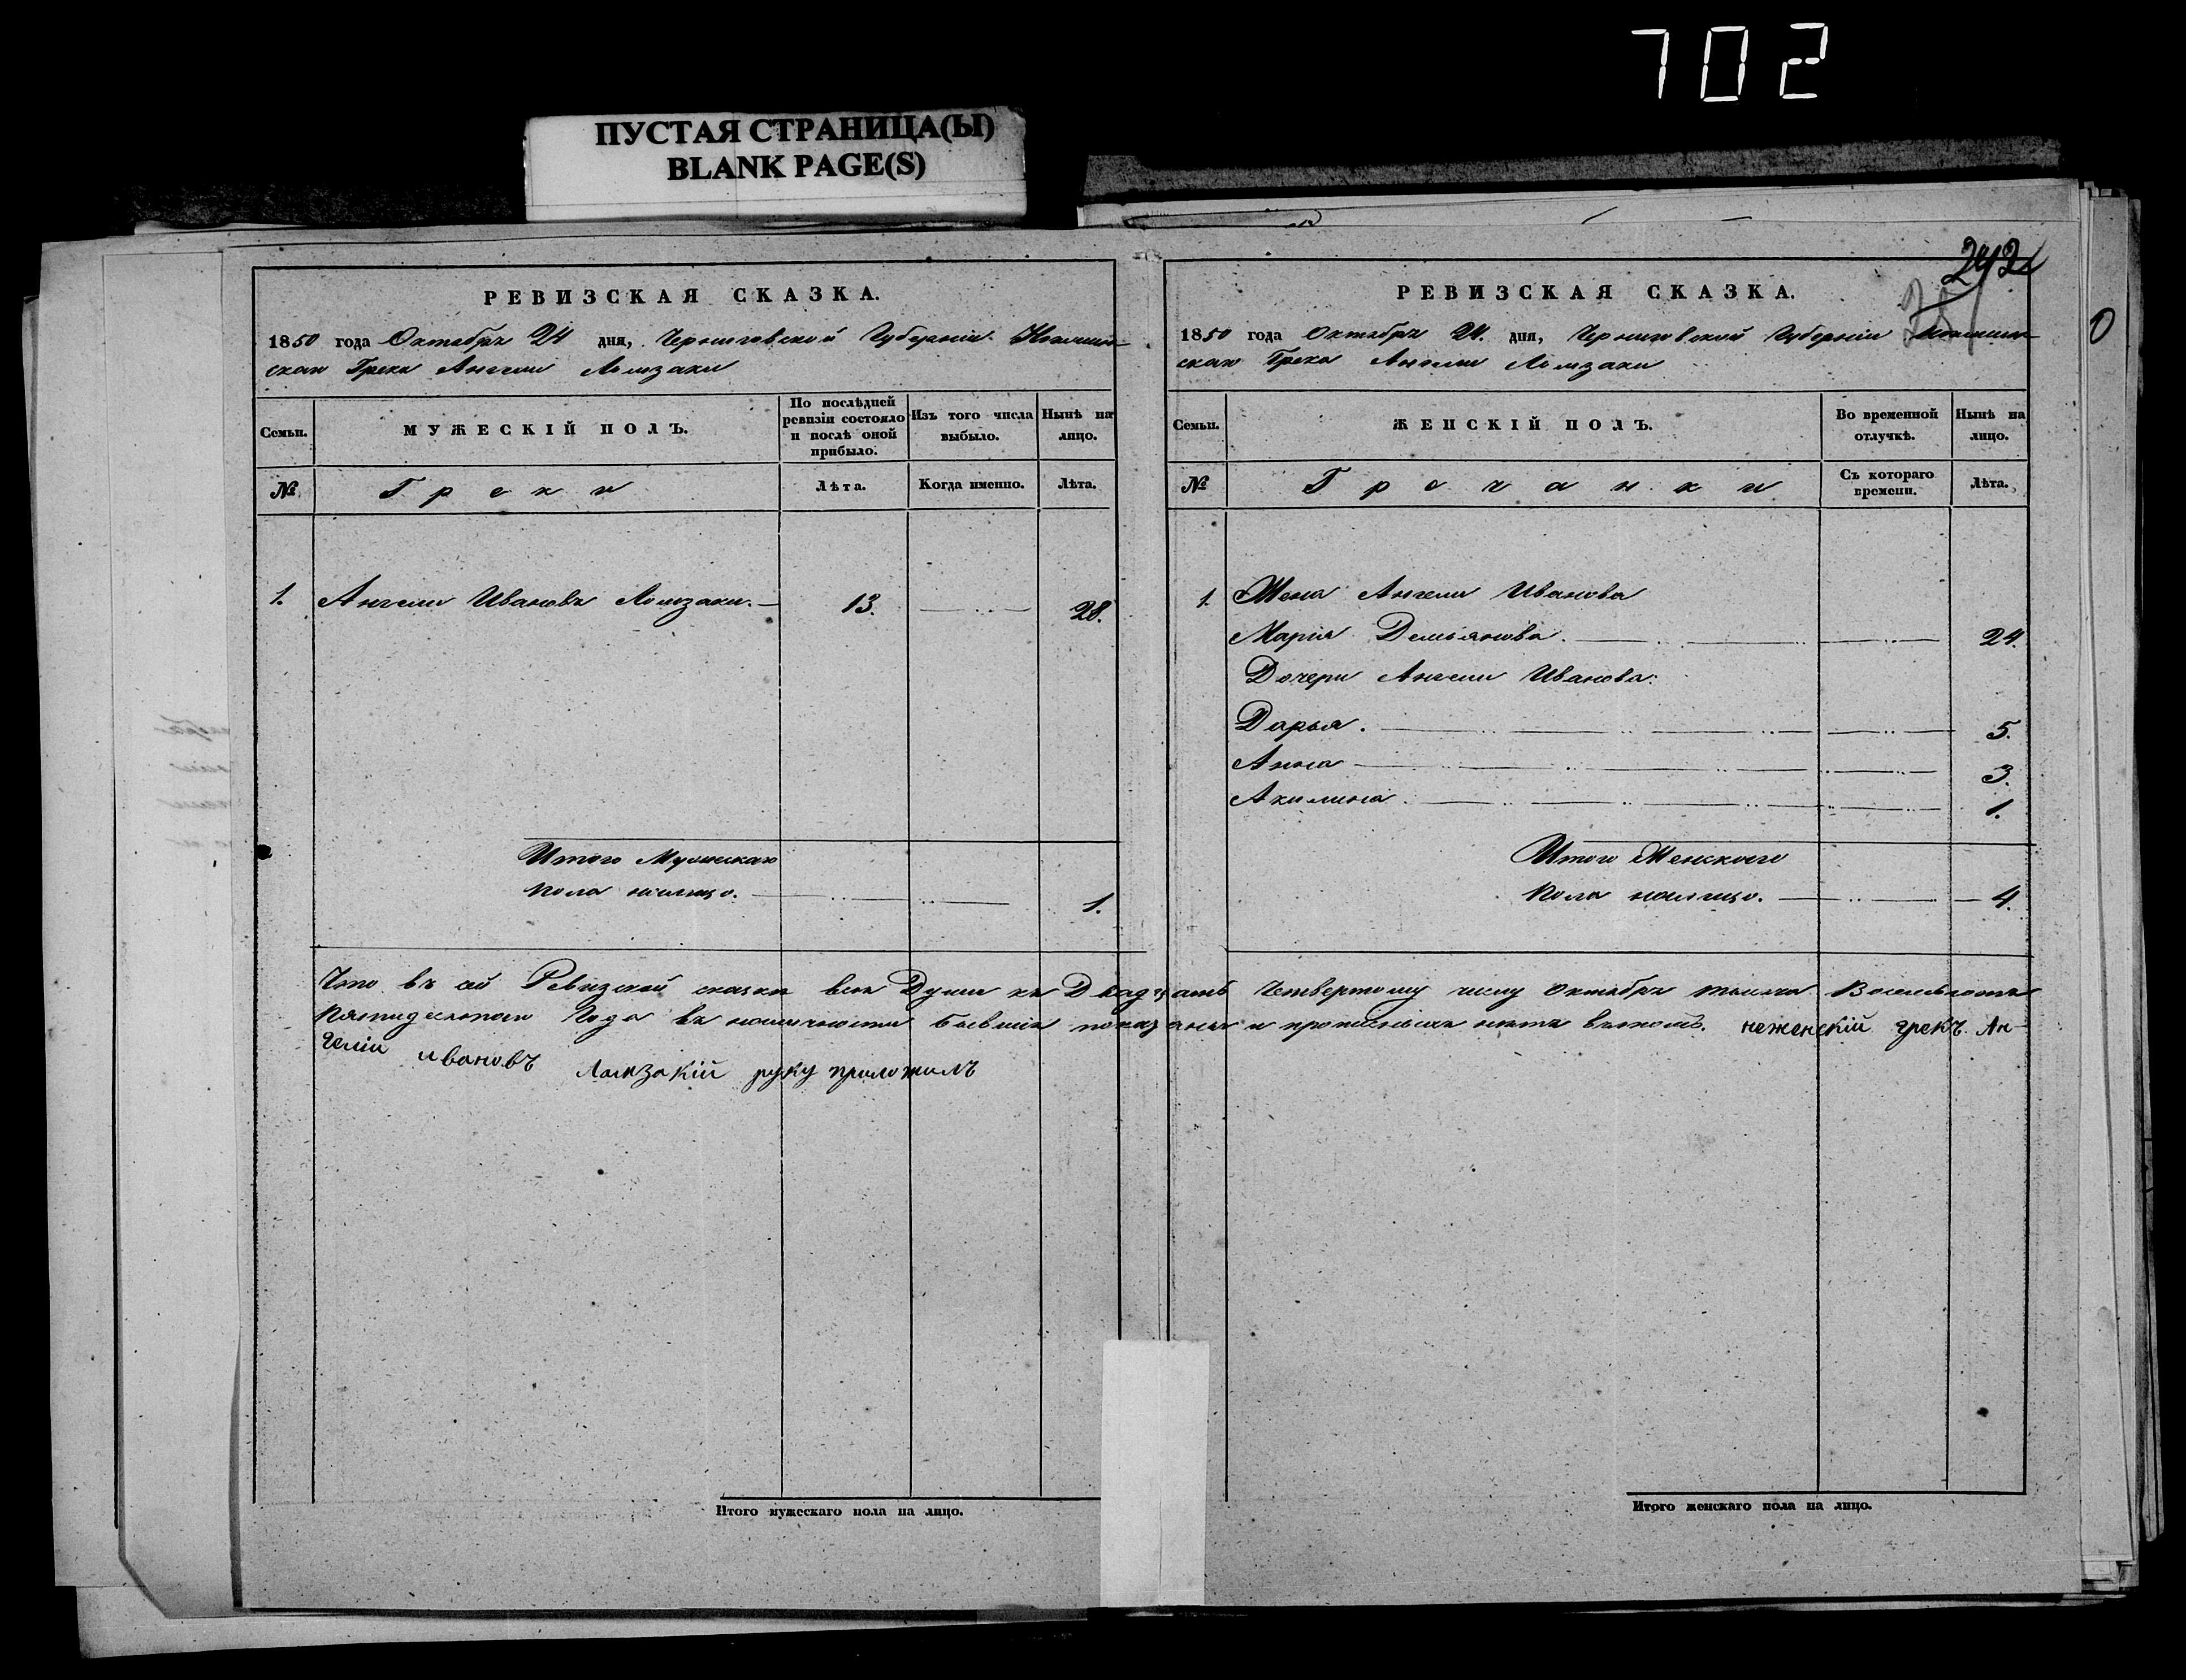 702
ПУСТАЯ СТРАНИЦА(Ы)
BLANK PAGE(S)
242
0
РЕВИЗСКАЯ СКАЗКА.
1850 года Октября 24 дня, Черниговской Губернiи Нежин-
скаго Грека Ангели Ломзаки
Семьи.
МУЖЕСКIЙ ПОЛЪ.
По послѣдней ревизiи состояло и послѣ оной прибыло.
Изъ того числа выбыло.
Нынѣ на лицо.
№
Греки
Лѣта.
Когда именно.
Лѣта.
1. Ангели Ивановъ Ломзаки. 13. 28.
Итого Мужескаго
пола налицо. 1.
РЕВИЗСКАЯ СКАЗКА.
1850 года Октября 24. дня, Черниговской Губернiи Нежин-
скаго Грека Ангели Ломзаки
Семьи.
ЖЕНСКIЙ ПОЛЪ.
Во временной отлучкѣ.
Нынѣ на лицо.
№
Гречанки
Съ котораго времени.
Лѣта.
1. Жена Ангели Иванова
Марiя Демьянова. 24.
Дочери Ангели Иванова:
Дарья. 5.
Анна 3.
Акилина. 1.
Итого Женскаго
пола налицо. 4.
Что въ сей Ревизской сказке все Души къ Двадцать Четвертому числу Октября тысяча Восемьсотъ
Пятидесятаго Года въ наличности бывшiе показаны и прописныхъ нетъ въ томъ. неженскiй грекъ Ан-
гелiи ивановъ Ламзакiй руку приложилъ
Итого мужескаго пола на лицо.
Итого женскаго пола на лицо.